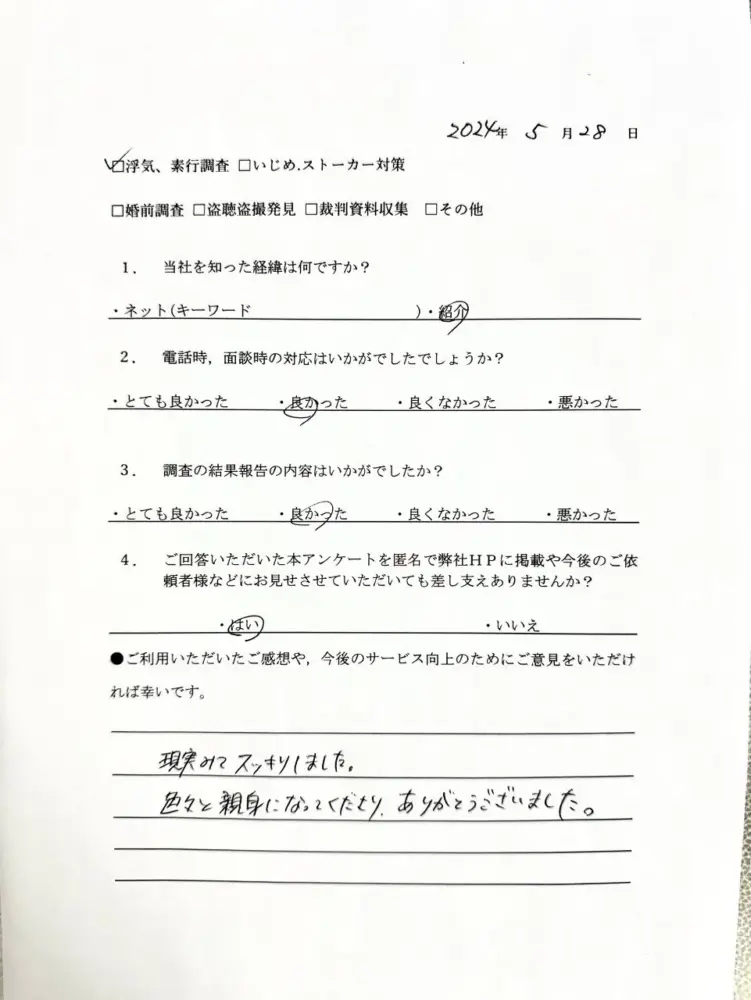 2024年 5 月 28 日
☑浮気、素行調査 □いじめ.ストーカー対策
□婚前調査 □盗聴盗撮発見 □裁判資料収集 □その他
1. 当社を知った経緯は何ですか？
・ネット(キーワード )・紹介
2. 電話時，面談時の対応はいかがでしたでしょうか？
・とても良かった ・良かった ・良くなかった ・悪かった
3. 調査の結果報告の内容はいかがでしたか？
・とても良かった ・良かった ・良くなかった ・悪かった
4. ご回答いただいた本アンケートを匿名で弊社ＨＰに掲載や今後のご依
頼者様などにお見せさせていただいても差し支えありませんか？
・はい ・いいえ
●ご利用いただいたご感想や，今後のサービス向上のためにご意見をいただけ
れば幸いです。
現実みてスッキリしました。
色々と親身になってくださり、ありがとうございました。